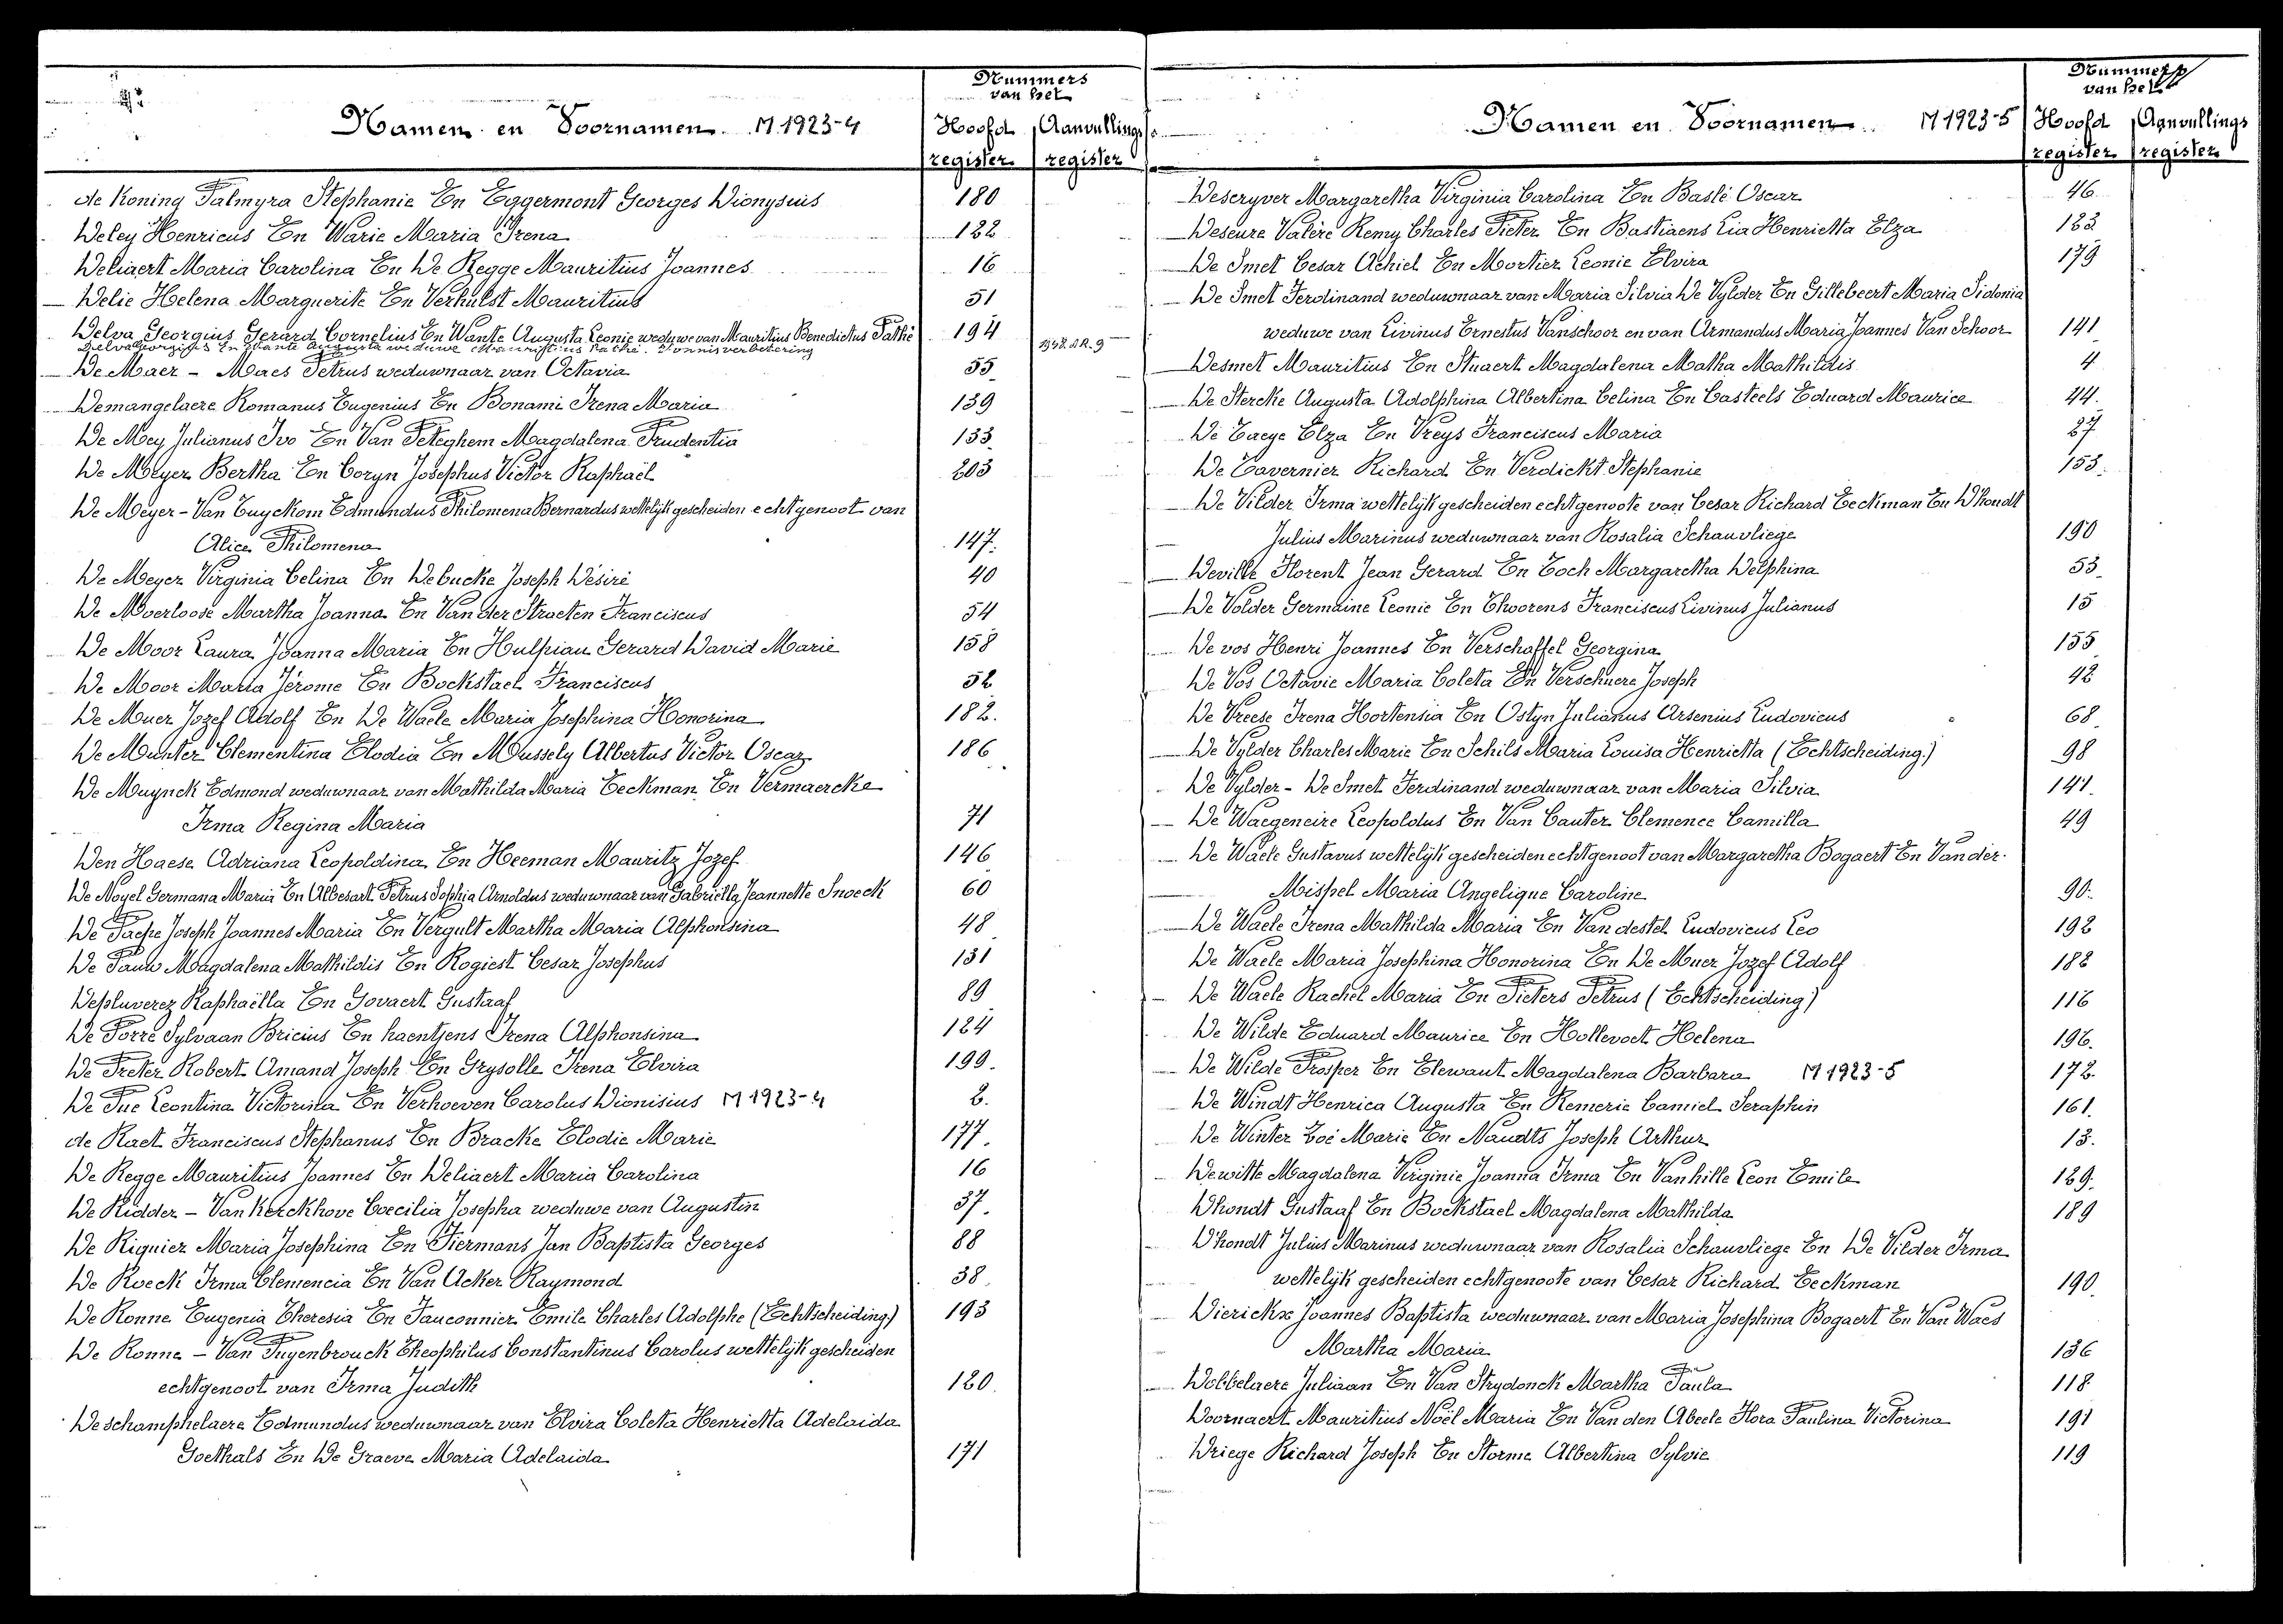 Nummers
van het
Namen en Voornamen M 1923-4
Hoofd Aanvullings
register register
de Koning Palmyra Stephanie En Eggermont Georges Dionysius 180
Deley Henricus En Warie Maria Irena 122
Deliaert Maria Carolina En De Regge Mauritius Joannes 16
Delie Helena Marguerite En Verhulst Mauritius 51
Delva Georgius Gerard Cornelius En Wante Augusta Leonie weduwe van Mauritius Benedictus Pathé 194
Delva Georgius En Wante Augusta weduwe Mauritius Pathé. Vonnisverbetering
De Maer - Maes Petrus weduwnaar van Octavia 55
Demangelaere Romanus Eugenius En Bonami Irena Maria 139
De Mey Julianus Ivo En Van Peteghem Magdalena Prudentia 133
De Meyer Bertha En Coryn Josephus Victor Raphaël 203
De Meyer - Van Tuyckom Edmundus Philomena Bernardus wettelijk gescheiden echtgenoot van
Alice Philomena 147.
De Meyer Virginia Celina En Debucke Joseph Désiré 40
De Moerloose Martha Joanna En Van der Straeten Franciscus 54
De Moor Laura Joanna Maria En Hulpiau Gerard David Marie 158
De Moor Maria Jérome En Bockstael Franciscus 52
De Muer Jozef Adolf En De Waele Maria Josephina Honorina 182.
De Munter Clementina Elodia En Mussely Albertus Victor Oscar 186
De Muynck Edmond weduwnaar van Mathilda Maria Eeckman En Vermaercke
Irma Regina Maria 71
Den Haese Adriana Leopoldina En Heeman Mauritz Jozef 146
De Noyel Germana Maria En Albesart Petrus Sophia Arnoldus weduwnaar van Gabriella Jeannette Snoeck 60
De Paepe Joseph Joannes Maria En Vergult Martha Maria Alphonsina 48
De Pauw Magdalena Mathildis En Rogiest Cesar Josephus 131
Depluverez Raphaëlla En Govaert Gustaaf 89
De Porre Sylvaan Bricius En haentjens Irena Alphonsina 124
De Preter Robert Amand Joseph En Grysolle Irena Elvira 199.
De Pue Leontina Victorina En Verhoeven Carolus Dionisius M 1923-4 2.
de Raet Franciscus Stephanus En Bracke Elodie Marie 177.
De Regge Mauritius Joannes En Deliaert Maria Carolina 16
De Ridder - Van Kerckhove Coecilia Josepha weduwe van Augustin 37.
De Riguier Maria Josephina En Tiermans Jan Baptista Georges 88
De Roeck Irma Clemencia En Van Acker Raymond 38.
De Ronne Eugenia Theresia En Fauconnier Emile Charles Adolphe (Echtscheiding.) 193
De Ronne - Van Puyenbrouck Theophilus Constantinus Carolus wettelijk gescheiden
echtgenoot van Irma Judith 120.
De schamphelaere Edmundus weduwnaar van Elvira Coleta Henrietta Adelaida
Goethals En De Graeve Maria Adelaida 171
Nummers
van het
Namen en Voornamen M 1923-5
Hoofd Aanvullings
register register
Deseryver Margaretha Virginia Carolina En Baslé Oscar 46.
Deseure Valère Remy Charles Pieter En Bastiaens Lia Henrietta Elza 123
De Smet Cesar Achiel En Mortier Leonie Elvira 179
De Smet Ferdinand weduwnaar van Maria Silvia De Vylder En Gillebeert Maria Sidonia
weduwe van Livinus Ernestus Vanschoor en van Armandus Maria Joannes Van Schoor 141
Desmet Mauritius En Stuaert Magdalena Matha Mathildis 4
De Stercke Augusta Adolphina Albertina Celina En Casteels Eduard Maurice 44.
De Taeye Elza En Vreys Franciscus Maria 27
De Tavernier Richard En Verdickt Stephanie 153.
De Vilder Irma wettelijk gescheiden echtgenoote van Cesar Richard Eeckman En D'hondt
Julius Marinus weduwnaar van Rosalia Schauvliege 190
Deville Florent Jean Gerard En Toch Margaretha Delphina 53.
De Volder Germaine Leonie En Thoorens Franciscus Livinus Julianus 15
De vos Henri Joannes En Verschaffel Georgina 155
De Vos Octavie Maria Coleta En Verschuere Joseph 42
De Vreese Irena Hortensia En Ostyn Julianus Arsenius Ludovicus 68
De Vylder Charles Marie En Schils Maria Louisa Henrietta (Echtscheiding.) 98
De Vylder - De Smet Ferdinand weduwnaar van Maria Silvia 141.
De Waegeneire Leopoldus En Van Cauter Clemence Camilla 49
De Waele Gustavus wettelijk gescheiden echtgenoot van Margaretha Bogaert En Van der
Mispel Maria Angelique Caroline 90.
De Waele Irena Mathilda Maria En Van destel Ludovicus Leo 192
De Waele Maria Josephina Honorina En De Muer Jozef Adolf 182
De Waele Rachel Maria En Pieters Petrus (Echtscheiding) 116
De Wilde Eduard Maurice En Hollevoet Helena 196.
De Wilde Prosper En Elewaut Magdalena Barbara M 1923-5 172
De Windt Henrica Augusta En Remerie Camiel Seraphin 161.
De Winter Zoé Marie En Naudts Joseph Arthur 13.
Dewitte Magdalena Virginie Joanna Irma En Vanhille Leon Emile 129.
Dhondt Gustaaf En Bockstael Magdalena Mathilda 189
D'hondt Julius Marinus weduwnaar van Rosalia Schauvliege En De Vilder Irma
wettelijk gescheiden echtgenoote van Cesar Richard Eeckman 190.
Dierickx Joannes Baptista weduwnaar van Maria Josephina Bogaert En Van Waes
Martha Maria 136
Dobbelaere Juliaan En Van Strydonck Martha Paula 118
Doornaert Mauritius Noël Maria En Van den Abeele Flora Paulina Victorina 191
Driege Richard Joseph En Storme Albertina Sylvie 119